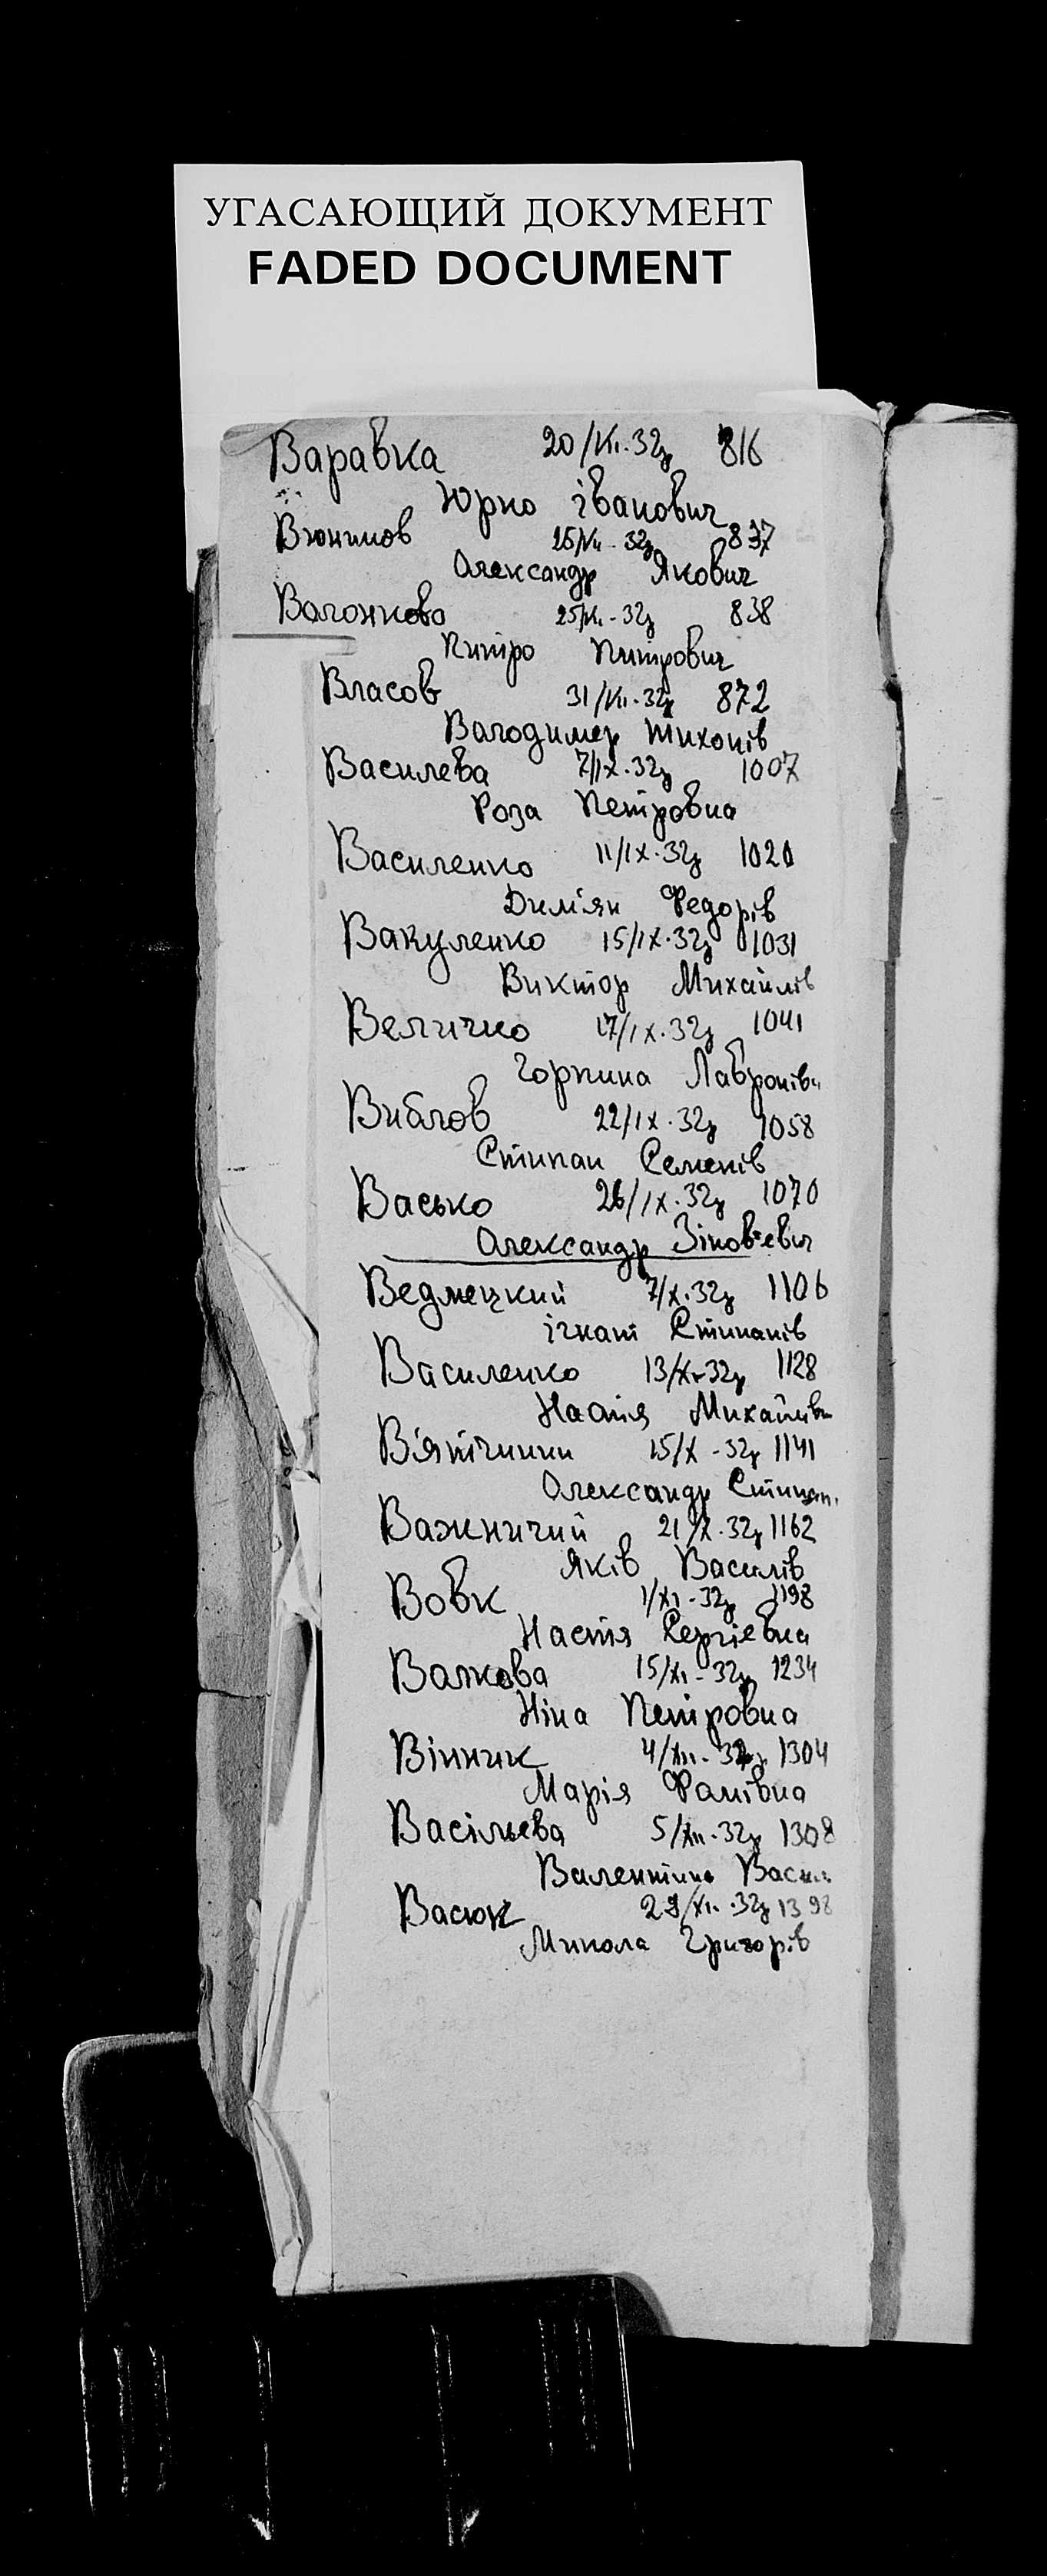 УГАСАЮЩИЙ ДОКУМЕНТ
FADED DOCUMENT
Варавка 20/VII-32р 816
Юрко іванович
25/VII-32р 837
Олександр Якович
25/VII-32р 838
Питро Питрович
Власов 31/VII-32р 872
Вагодимер Тихонів
Василева 7/IX-32р 1007
Роза Петровна
Василенко 11/IX-32р 1020
Дим'ян Федорів
Вакуленко 15/IX-32р 1031
Виктор Михайлів
Величко 17/IX-32р 1041
Горпина
Виблов 22/IX-32р 1058
Стипан Семенів
Васько 26/IX-32р 1070
Олександр Зіновьевич
Ведмецкий 7/X-32р 1106
ігнат Стипанів
Василенко 13/X-32р 1128
Настія Михайлівн
15/X-32р 1141
Олександр Стипан.
Важничий 21/X-32р 1162
Яків Василів
Вовк 1/XI-32р 1198
Настія Сергіевна
15/XI-32р 1234
Ніна Петровна
Вінник 4/XII-32р 1304
Марія
Васільева 5/XII-32р 1308
Валентина Васил
Васюк 29/XII-32р 1398
Микола Григорів